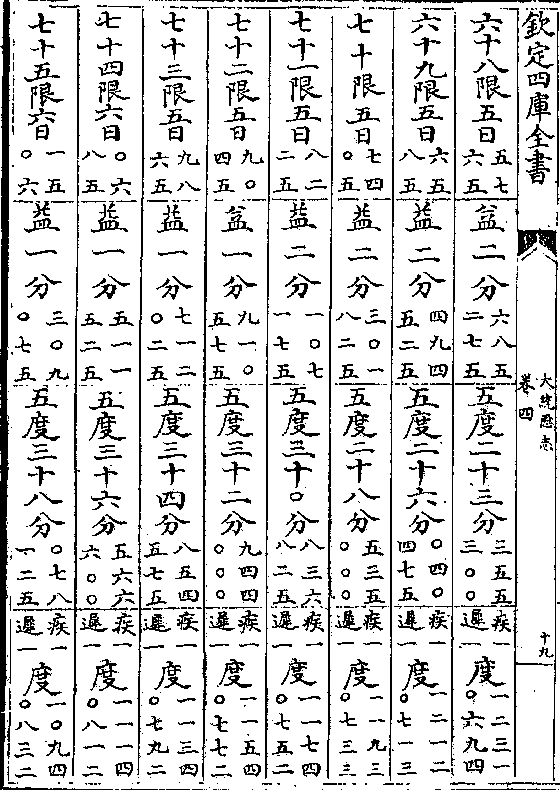 欽定四庫全書
大統厯志
卷四
十九
六十八限五日五七六五益二分六八五二七五五度二十三分三五五三〇〇疾一遲一度一二三一〇六九四
六十九限五日六五八五益二分四九四五二五五度二十六分〇四〇四七五疾一遲一度一二一二〇七一三
七十限五日七四〇五益二分三〇一八二五五度二十八分五三五〇〇〇疾一遲一度一一九三〇七三三
七十一限五日八二二五益二分一〇七一七五五度三十〇分八三六八二五疾一遲一度一一七四〇七五二
七十二限五日九〇四五益一分九一〇五七五五度三十二分九四四〇〇〇疾一遲一度一一五四〇七七二
七十三限五日九八六五益一分七一二〇二五五度三十四分八五四五七五疾一遲一度一一三四〇七九二
七十四限六日〇六八五益一分五一一五二五五度三十六分五六六六〇〇疾一遲一度一一一四〇八一二
七十五限六日一五〇六益一分三〇九〇七五五度三十八分〇七八一二五疾一遲一度一〇九四〇八三二